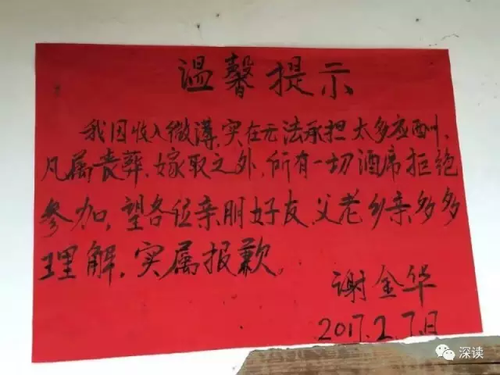 温馨提示
我因收入微薄,实在无法承担太多应酬,
凡属丧葬、嫁取之外,所有一切酒席拒绝
参加,望各位亲朋好友、父老乡亲多多
理解,实属报歉。
谢金华
2017.2.7.日
深读